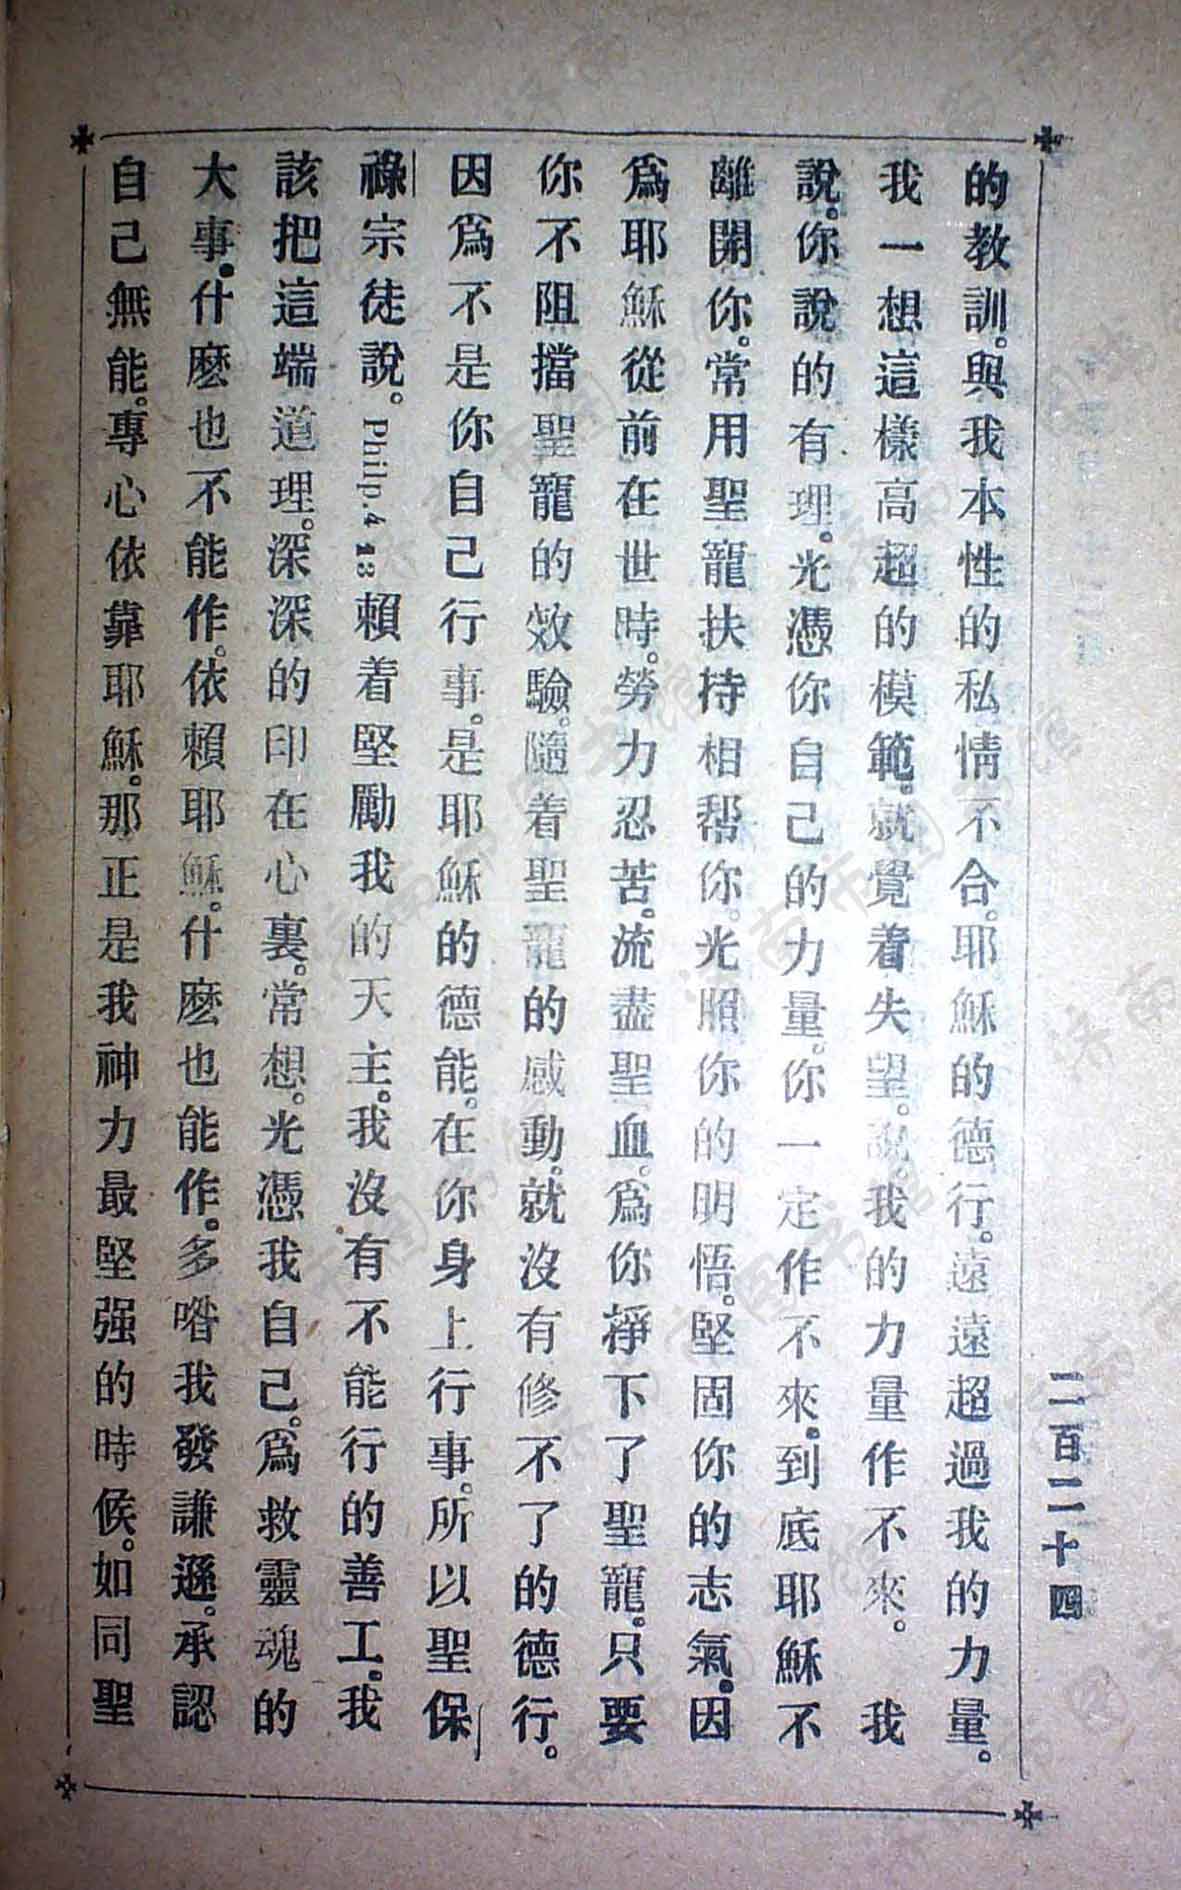 的教訓。與我本性的私情不合。耶穌的德行。遠遠超過我的力量。
我一想這樣高超的模範。就覺着失望。說。我的力量作不來。　我
說。你說的有理。光憑你自己的力量。你一定作不來。到底耶穌不
離開你。常用聖寵扶持相帮你。光照你的明悟。堅固你的志氣。因
爲耶穌從前在世時。勞力忍苦。流盡聖血。爲你掙下了聖寵。只要
你不阻擋聖寵的效驗。隨着聖寵的感動。就沒有修不了的德行。
因爲不是你自己行事。是耶穌的德能。在你身上行事。所以聖保
祿宗徒說。Philp.4 13賴着堅勵我的天主。我沒有不能行的善工。我
該把這端道理。深深的印在心裏。常想。光憑我自己。爲救靈魂的
大事。什麽也不能作。依賴耶穌。什麽也能作。多喒我發謙遜。承認
自己無能。專心依靠耶穌。那正是我神力最堅强的時候。如同聖
二百二十四